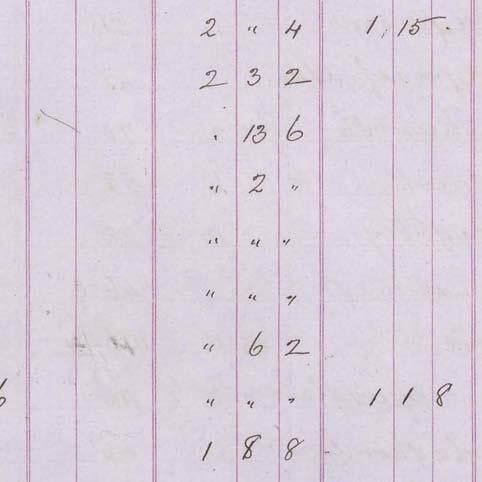 2 " 4 1 . 15 .
2 3 2
. 13 6
" 2 "
" " "
" " "
" 6 2
6 " " " 1 1 8
1 8 8 -